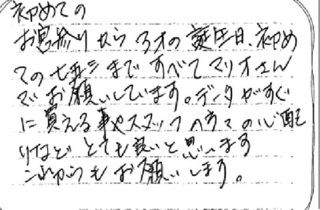 初めての
お宮参りから3才の誕生日、初め
ての七五三まですべてマリオさん
でお願いしています。データがすぐ
に貰える事やスタッフの方々の心配
りなどとても良いと思います
これからもお願いします。